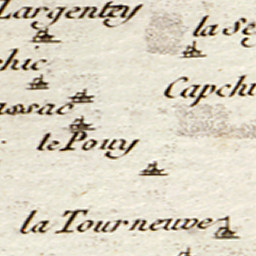 Largentey
la Se
hic
Capchi
assac
le Pouy
la Tourneuve